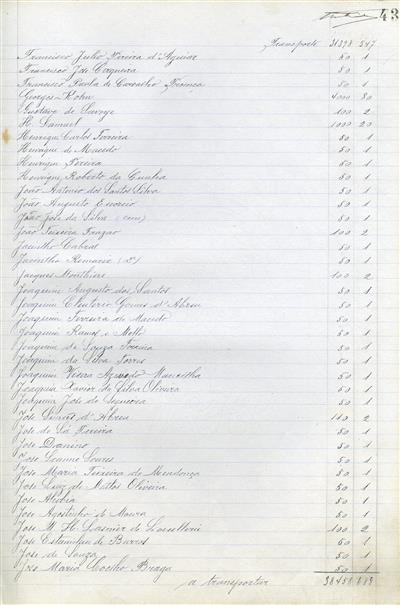 43
Transporte 31398 547
Francisco Julio Pereira d'Aguiar 50 1
Francisco José Cerqueira 50 1
Francisco Paula de Carvalho Fonseca 50 1
Georges Kohn 4000 80
Gustavo de 100 2
H. Samuel 1000 20
Henrique Carlos Ferreira 50 1
Henrique de Macedo 50 1
Henrique Pereira 50 1
Henrique Roberto da Cunha 50 1
João Antonio dos Santos Silva 50 1
João Augusto 50 1
João José da Silva 50 1
João Teixeira Frazão 100 2
Jacintho Cabral 50 1
Jacintho Romario 50 1
Jacques 100 2
Joaquim Augusto dos Santos 50 1
Joaquim Eleuterio Gomes d'Abreu 50 1
Joaquim Ferreira de Macedo 50 1
Joaquim Ramos e Mello 50 1
Joaquim de Souza Ferreira 50 1
Joaquim da Silva Torres 50 1
Joaquim Vieira 50 1
Joaquim Xavier da Silva Oliveira 50 1
Joaquim José de Sequeira 50 1
José Soares d'Abreu 110 2
José de Sá Pereira 50 1
José 50 1
José Soares 50 1
José Maria Teixeira de Mendonça 50 1
José Luiz de Mattos Oliveira 50 1
José 50 1
José Agostinho de Moura 50 1
José M. H. 100 2
José Estanislau de Barros 50 1
José de Souza 50 1
José Maria Coelho Braga 50 1
a transportar